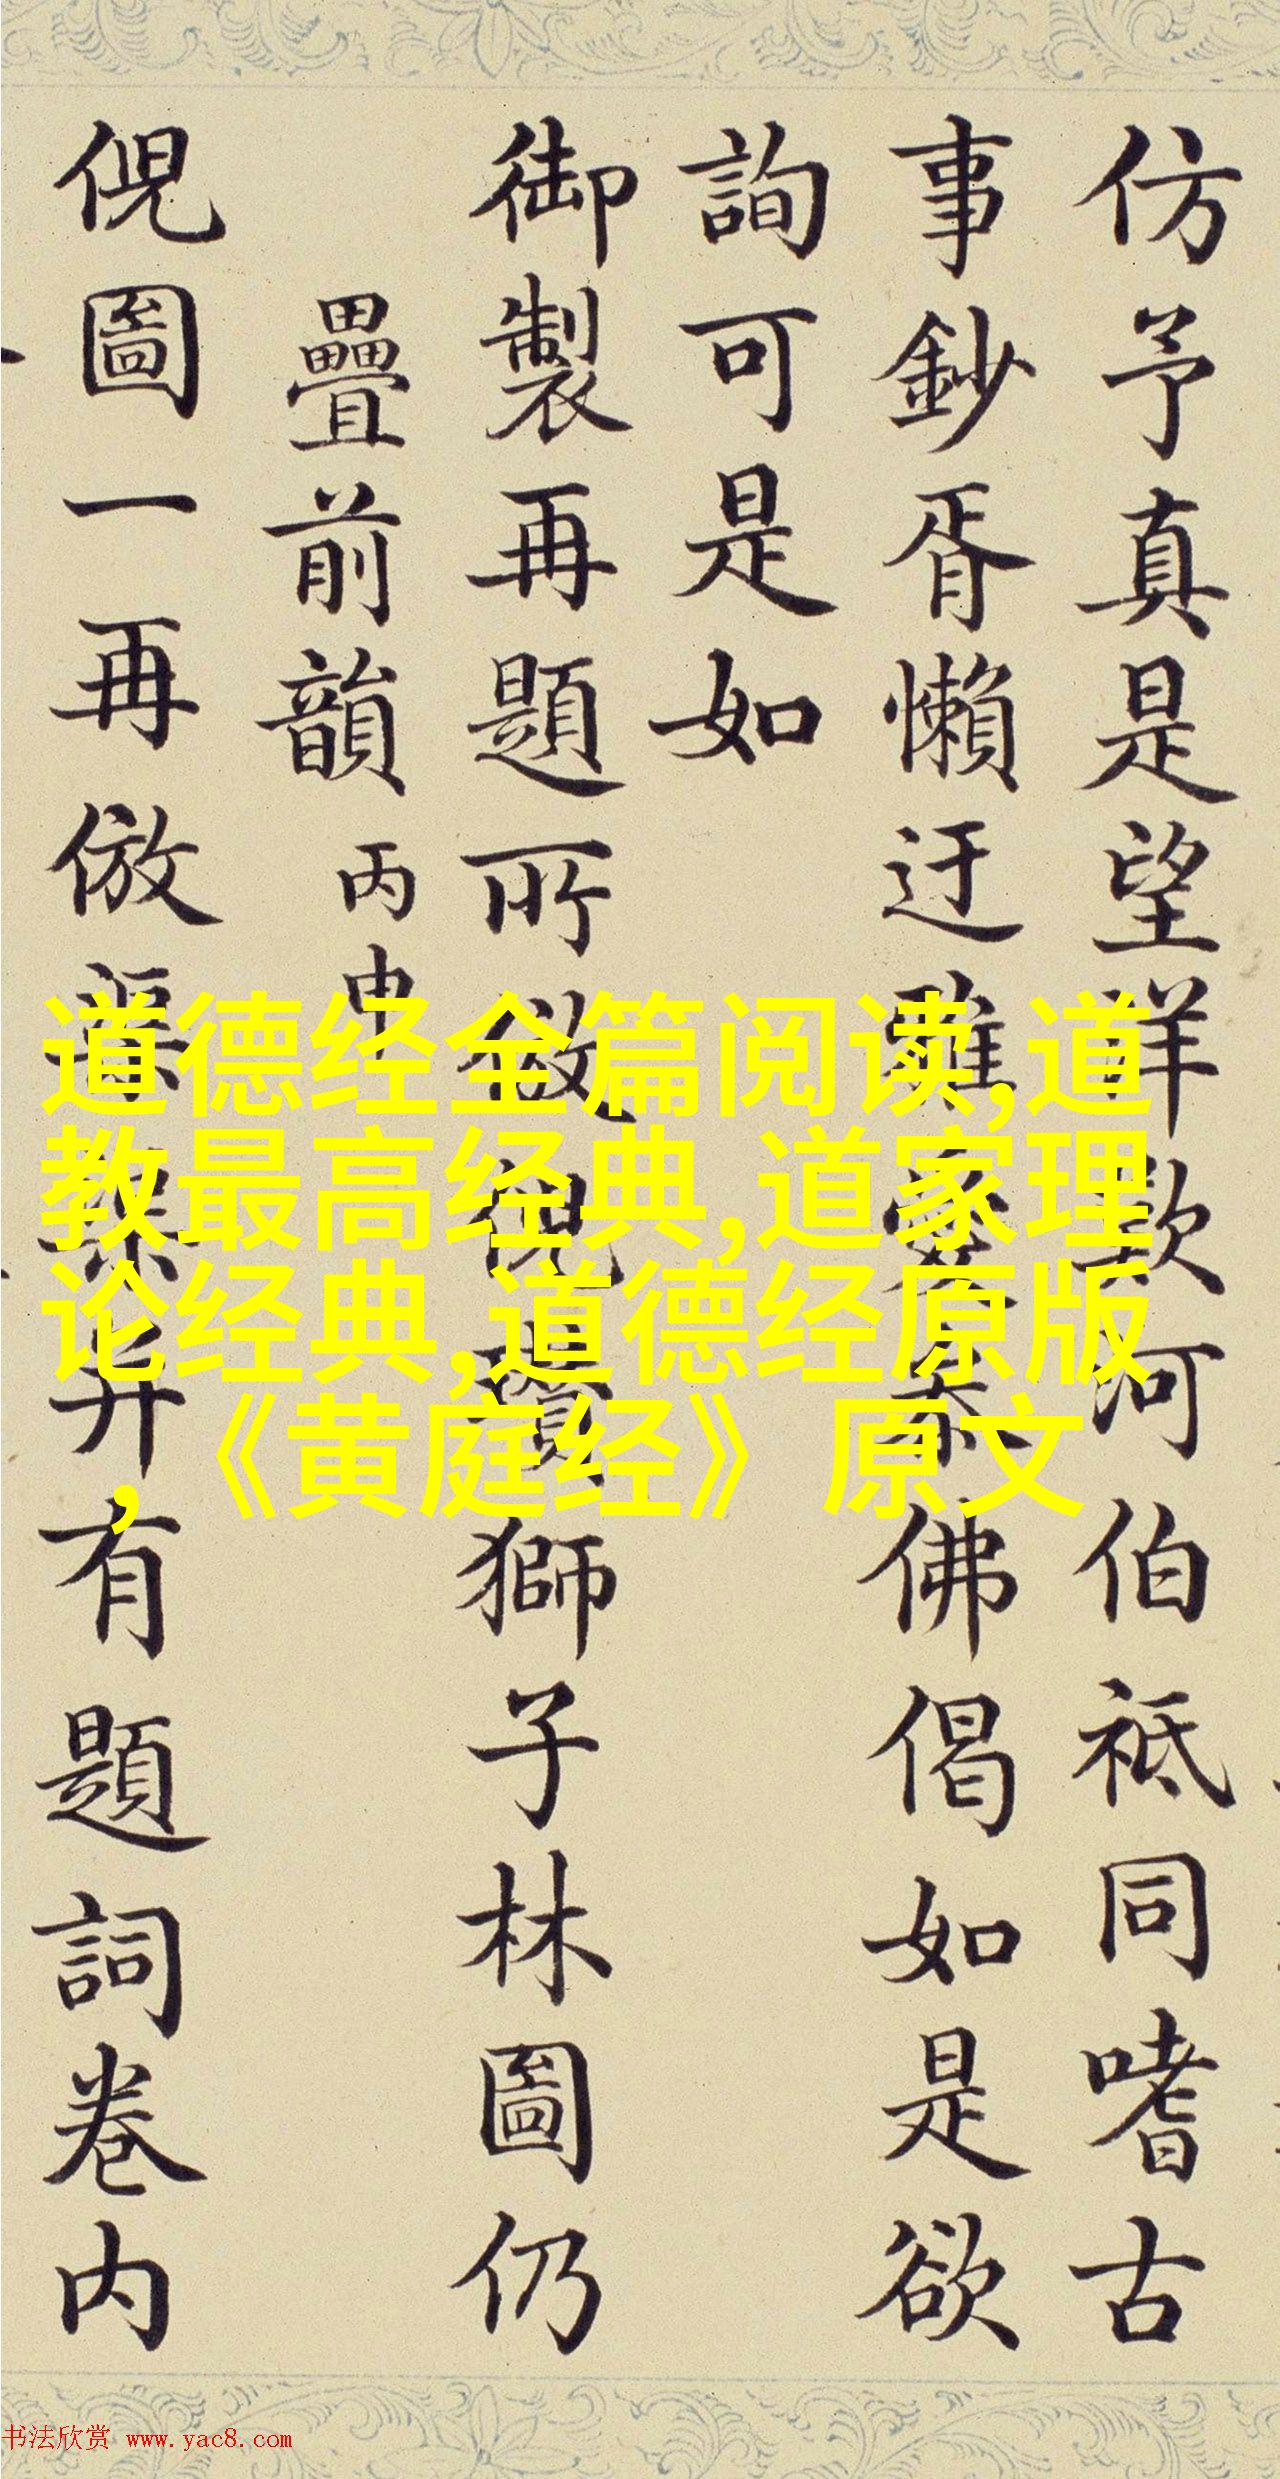 仿予真是望洋歎河伯祗同嗜古
事鈔胥懶迂雖愛泰佛偈如是欲
詢可是如
御製再題所倣倪瓚獅子林圖仍
疊前韻丙申
倪圖一再倣并有題詞卷内
道德经全篇阅读,道
教最高经典,道家理
论经典,道德经原版
,《黄庭经》原文
书法欣赏 www.yac8.com